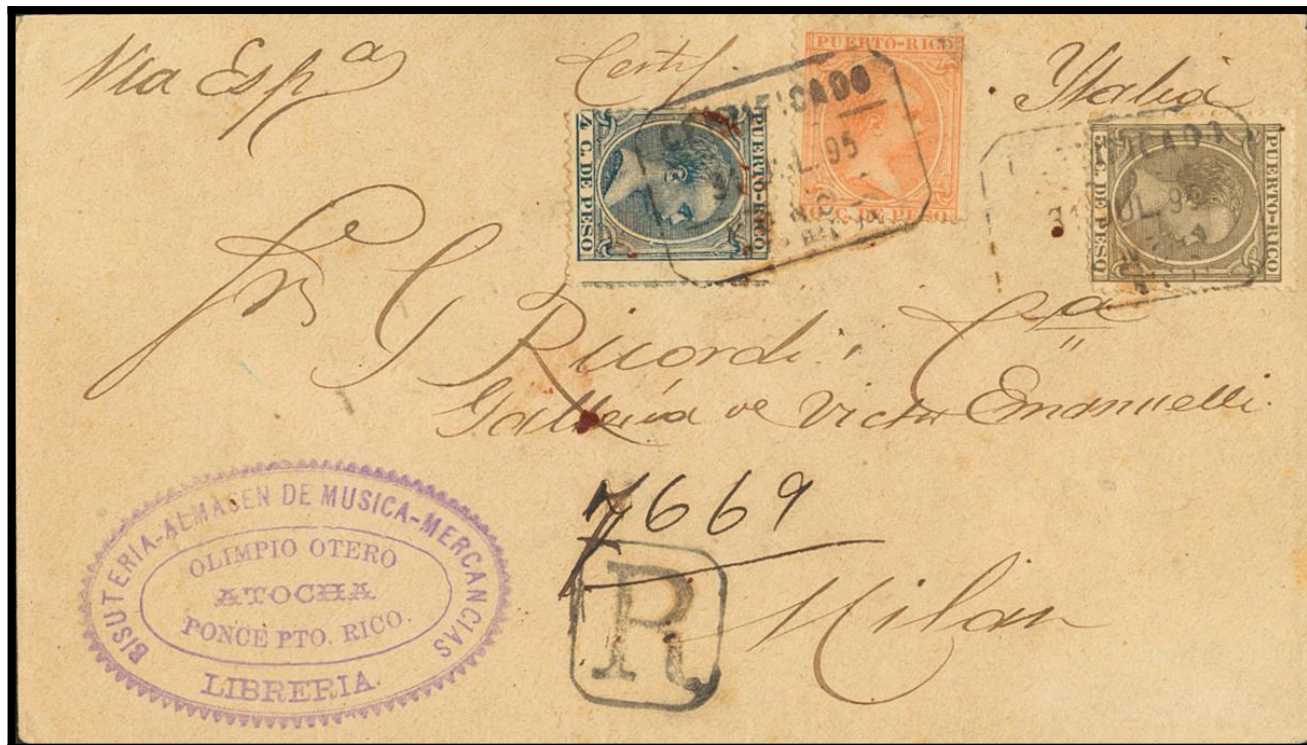 Via Espª
Certf.
Italia
PUERTO-RICO
C. DE PESO
4 C. DE PESO
PUERTO-RICO
CERTIFICADO
JUL. 95
PONCE
C. DE PESO
PUERTO-RICO
31 JUL. 95
G Ricordi i Cª
Galleria de Victor Emanuelli.
7669
R
Milan
BISUTERIA-ALMASEN DE MUSICA-MERCANCIAS
OLIMPIO OTERO
ATOCHA
PONCE PTO. RICO.
LIBRERIA.